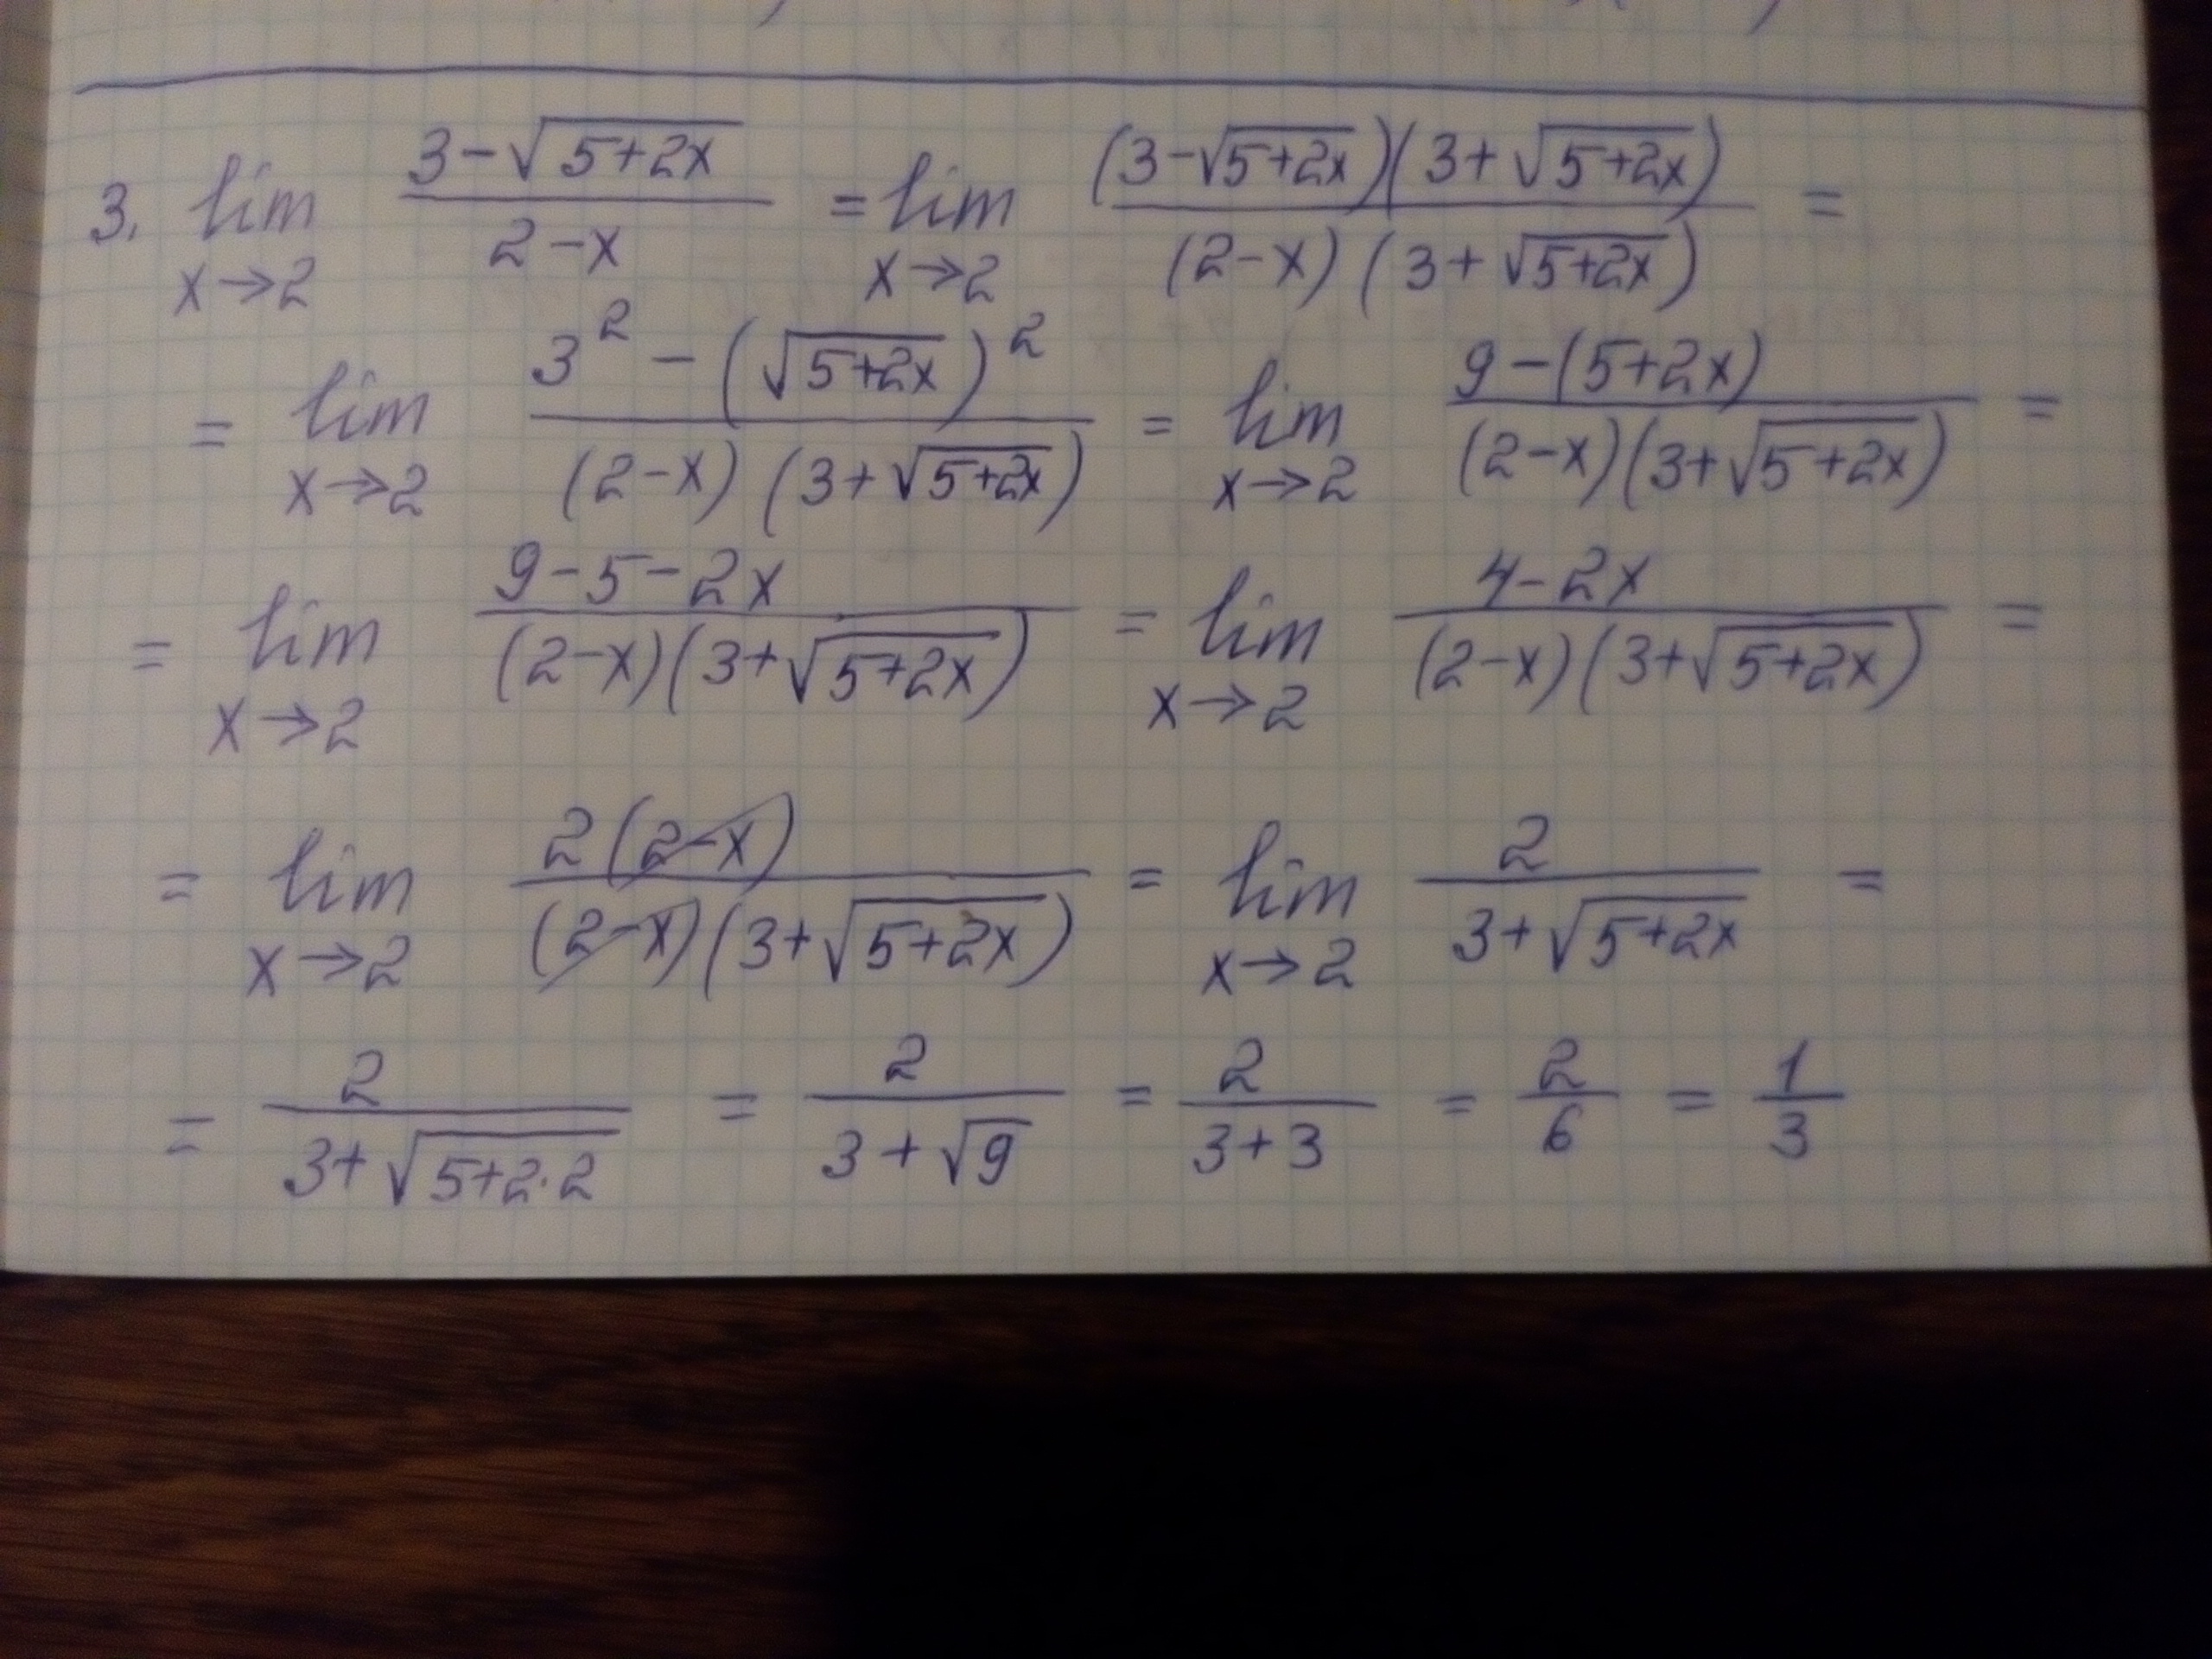 3. lim x→2 (3-√(5+2x))/(2-x) = lim x→2 ((3-√(5+2x))(3+√(5+2x)))/((2-x)(3+√(5+2x))) =
= lim x→2 (3² - (√(5+2x))²)/((2-x)(3+√(5+2x))) = lim x→2 (9-(5+2x))/((2-x)(3+√(5+2x))) =
= lim x→2 (9-5-2x)/((2-x)(3+√(5+2x))) = lim x→2 (4-2x)/((2-x)(3+√(5+2x))) =
= lim x→2 (2(2-x))/((2-x)(3+√(5+2x))) = lim x→2 2/(3+√(5+2x)) =
= 2/(3+√(5+2·2)) = 2/(3+√9) = 2/(3+3) = 2/6 = 1/3